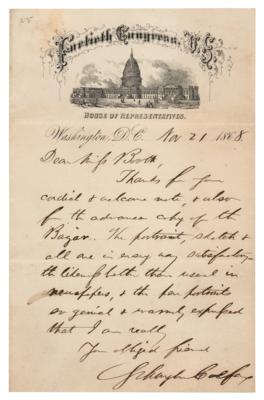 25
Fortieth Congress, U.S.
House of Representatives.
Washington, D.C. Nov 21 1868.
Dear Miss Booth,
Thanks for your
cordial & welcome note, & also
for the advance copy of the
Bazar. The portrait, sketch &
all are in every way satisfactory,
the likeness better than usual in
newspapers, & the pen portrait
so genial & warmly expressed
that I am really
Your obliged friend
Schuyler Colfax